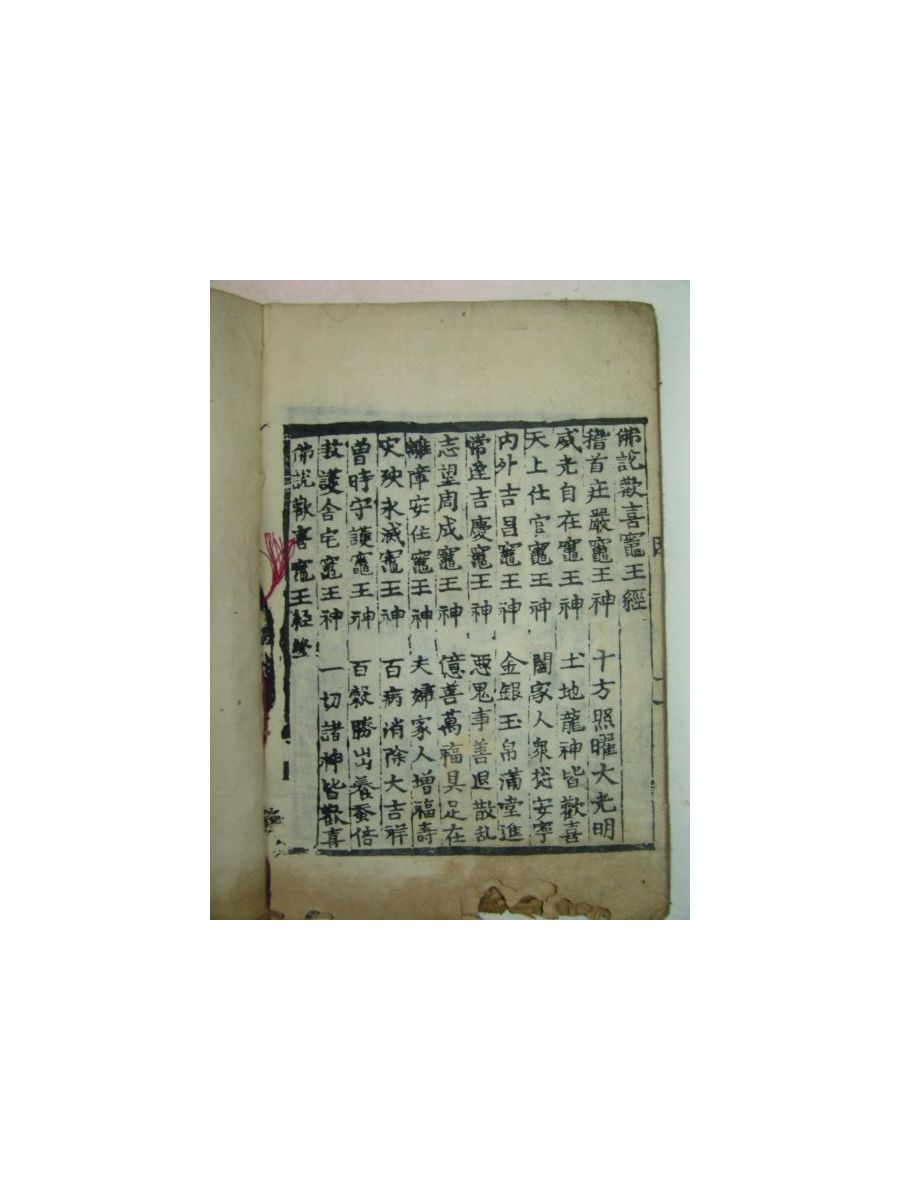 佛說歡喜竈王經
稽首莊嚴竈王神 十方照曜大光明
威光自在竈王神 土地龍神皆歡喜
天上仕官竈王神 闔家人衆捴安寧
內外吉昌竈王神 金銀玉帛滿堂進
常逹吉慶竈王神 惡鬼事善退散乱
志望周成竈王神 億善萬福具足在
離障安住竈王神 夫婦家人增福壽
灾殃永滅竈王神 百病消除大吉祥
曽時守護竈王神 百穀勝出養蚕倍
救護舍宅竈王神 一切諸神皆歡喜
佛說歡喜竈王経終